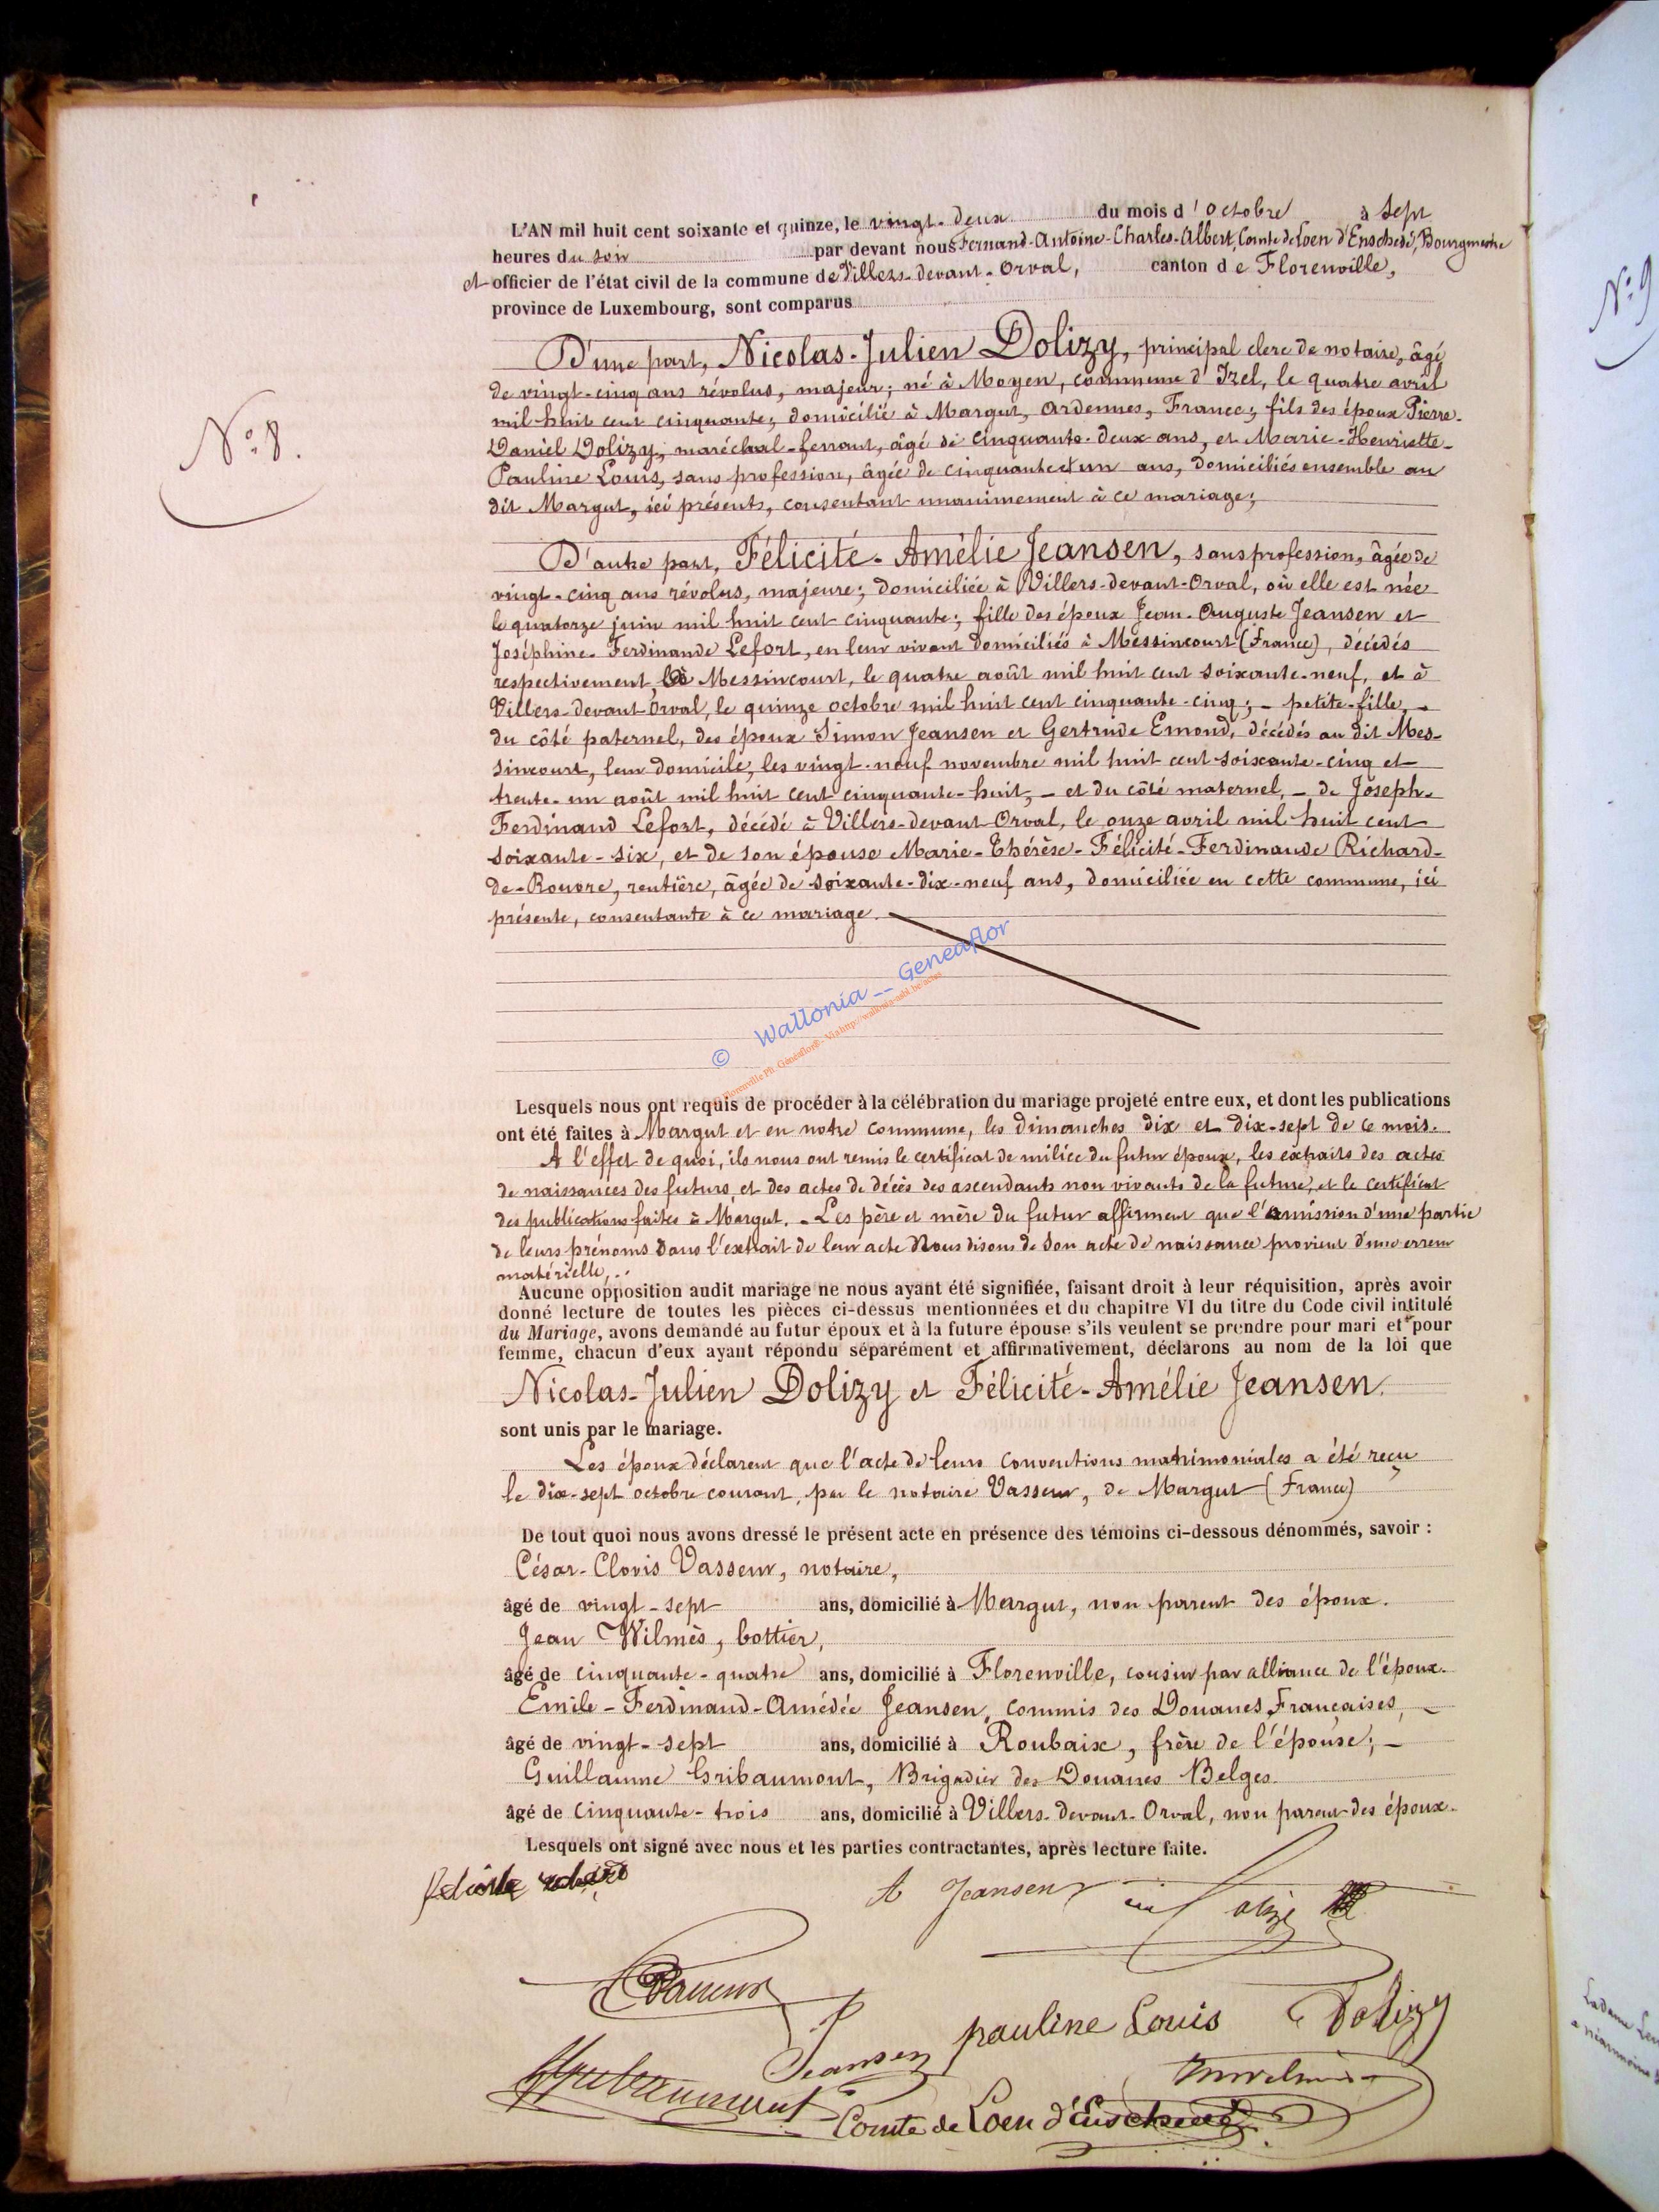 L'AN mil huit cent soixante et quinze, le vingt-deux du mois d'octobre à sept
heures du soir par devant nous Fernand-Antoine-Charles-Albert, Comte de Loen d'Enschedé, Bourgmestre
et officier de l'état civil de la commune de Villers-devant-Orval, canton de Florenville,
province de Luxembourg, sont comparus
N° 8.
N° 9
D'une part, Nicolas-Julien Dolizy, principal clerc de notaire, âgé
de vingt-cinq ans révolus, majeur; né à Moyen, commune d'Izel, le quatre avril
mil huit cent cinquante; domicilié à Margut, Ardennes, France; fils des époux Pierre-
Daniel Dolizy, maréchal-ferrant, âgé de cinquante-deux ans, et Marie-Henriette-
Pauline Louis, sans profession, âgée de cinquante et un ans, domiciliés ensemble au
dit Margut, ici présents, consentant unanimement à ce mariage;
D'autre part, Félicité-Amélie Jeansen, sans profession, âgée de
vingt-cinq ans révolus, majeure; domiciliée à Villers-devant-Orval, où elle est née
le quatorze juin mil huit cent cinquante; fille des époux Jean-Auguste Jeansen et
Joséphine-Ferdinande Lefort, en leur vivant domiciliés à Messincourt (France), décédés
respectivement à Messincourt, le quatre août mil huit cent soixante-neuf, et à
Villers-devant-Orval, le quinze octobre mil huit cent cinquante-cinq; - petite-fille, -
du côté paternel, des époux Simon Jeansen et Gertrude Emond, décédés au dit Mes-
sincourt, leur domicile, les vingt-neuf novembre mil huit cent soixante-cinq et
trente-un août mil huit cent cinquante-huit, - et du côté maternel, - de Joseph-
Ferdinand Lefort, décédé à Villers-devant-Orval, le onze avril mil huit cent
soixante-six, et de son épouse Marie-Thérèse-Félicité-Ferdinande Richard-
de-Rouvre, rentière, âgée de soixante-dix-neuf ans, domiciliée en cette commune, ici
présente, consentante à ce mariage.
© Wallonia -- Geneaflor
Florenville Ph. Généaflor® - Via http://wallonia-asbl.be/actes
Lesquels nous ont requis de procéder à la célébration du mariage projeté entre eux, et dont les publications
ont été faites à Margut et en notre commune, les dimanches dix et dix-sept de ce mois.
A l'effet de quoi, ils nous ont remis le certificat de milice du futur époux, les extraits des actes
de naissances des futurs, et des actes de décès des ascendants non vivants de la future, et le certificat
des publications faites à Margut. - Les père et mère du futur affirment que l'omission d'une partie
de leurs prénoms dans l'extrait de leur acte Nous disons de son acte de naissance provient d'une erreur
matérielle, ..
Aucune opposition audit mariage ne nous ayant été signifiée, faisant droit à leur réquisition, après avoir
donné lecture de toutes les pièces ci-dessus mentionnées et du chapitre VI du titre du Code civil intitulé
du Mariage, avons demandé au futur époux et à la future épouse s'ils veulent se prendre pour mari et pour
femme, chacun d'eux ayant répondu séparément et affirmativement, déclarons au nom de la loi que
Nicolas-Julien Dolizy et Félicité-Amélie Jeansen.
sont unis par le mariage.
Les époux déclarent que l'acte de leurs conventions matrimoniales a été reçu
le dix-sept octobre courant, par le notaire Vasseur, de Margut (France)
De tout quoi nous avons dressé le présent acte en présence des témoins ci-dessous dénommés, savoir :
César-Clovis Vasseur, notaire,
âgé de vingt-sept ans, domicilié à Margut, non parent des époux.
Jean Wilmès, bottier,
âgé de cinquante-quatre ans, domicilié à Florenville, cousin par alliance de l'époux.
Emile-Ferdinand-Amédée Jeansen, commis des Douanes Françaises, -
âgé de vingt-sept ans, domicilié à Roubaix, frère de l'épouse; -
Guillaume Gribaumont, Brigadier des Douanes Belges.
âgé de cinquante-trois ans, domicilié à Villers-devant-Orval, non parent des époux.
Lesquels ont signé avec nous et les parties contractantes, après lecture faite.
A Jeansen
Vasseur
pauline Louis Dolizy
Jeansen
Gribaumont
Comte de Loen d'Enschedé